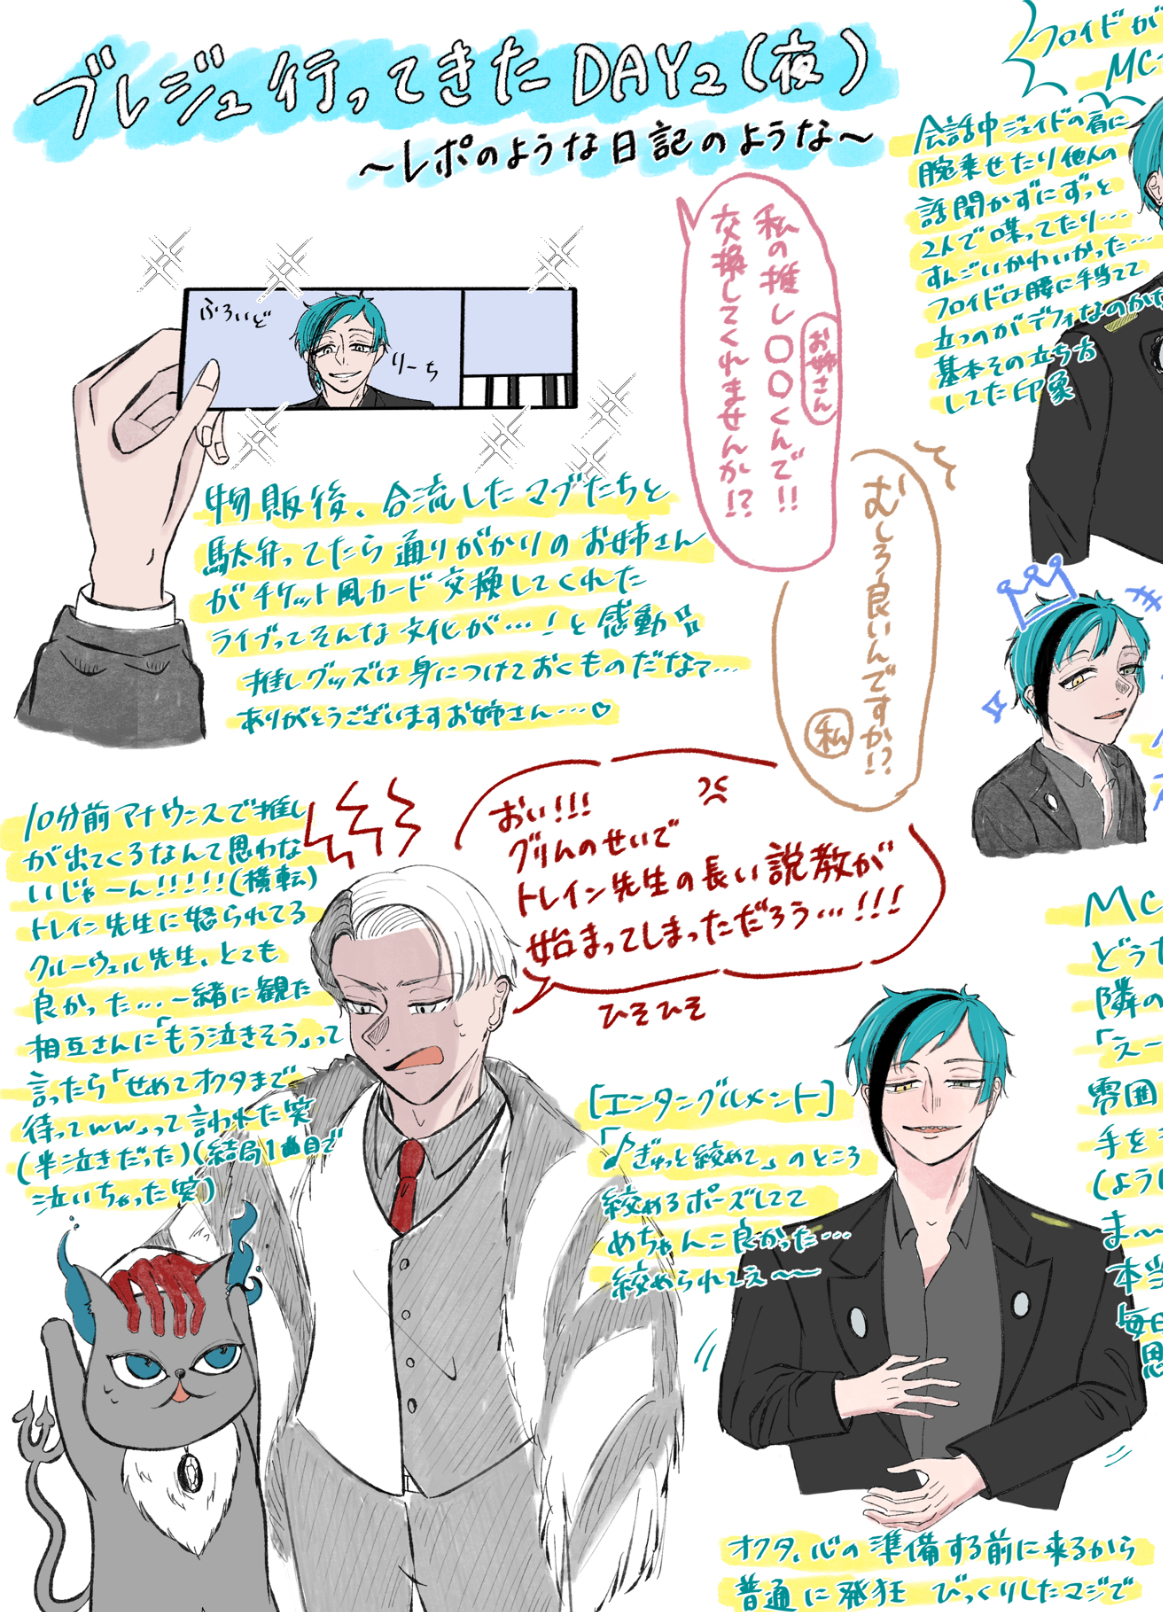 ブレジュ行ってきたDAY2(夜)
〜レポのような日記のような〜
フロイドが
MC
会話中ジェイドの肩に
腕乗せたり他人の
話聞かずにずっと
2人で喋ってたり…
すんごいかわいかった…
フロイドは腰に手当てて
立つのがデフォなのかな
基本その立ち方
してた印象
ふろいど
りーち
私の推し〇〇くんで!!
交換してくれませんか!?
お姉さん
むしろ良いんですか!?
私
物販後、合流したマブたちと
駄弁ってたら通りがかりのお姉さん
がチケット風カード交換してくれた
ライブってそんな文化が…!と感動
推しグッズは身につけておくものだなって…
ありがとうございますお姉さん…♡
10分前アナウンスで推し
が出てくるなんて思わな
いじゃーん!!!!!(横転)
トレイン先生に怒られてる
クルーウェル先生、とても
良かった…一緒に観た
相互さんに「もう泣きそう」って
言ったら「せめてオクタまで
待ってww」って言われた笑
(半泣きだった)(結局1曲目で
泣いちゃった笑)
おい!!!
グリムのせいで
トレイン先生の長い説教が
始まってしまっただろう…!!!
ひそひそ
[エンタングルメント]
「♪ぎゅっと絞めて」のところ
絞めるポーズしてて
めちゃんこ良かった…
絞められてえ〜〜
MC
どうも
隣の
「えー
雰囲
手を
(ようし
ま〜
本当
毎日
思
オクタ、心の準備する前に来るから
普通に発狂 びっくりしたマジで